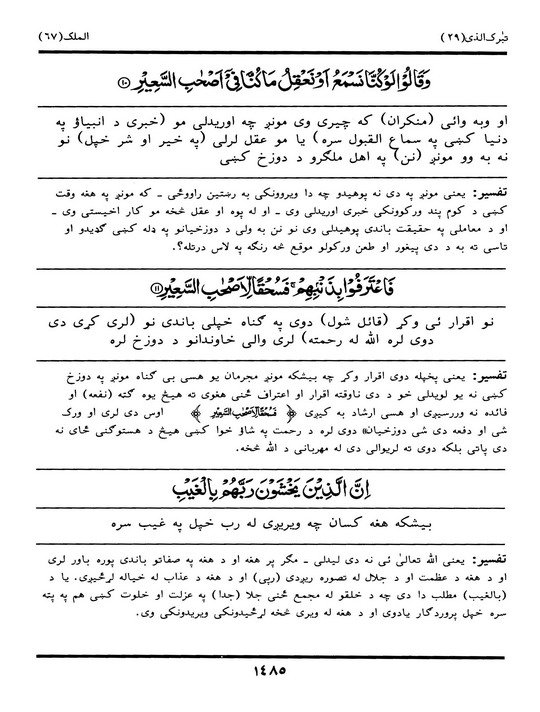 تبرک الذی (۲۹)
الملک (۶۷)
وَقَالُوْا لَوْ كُنَّا نَسْمَعُ اَوْ نَعْقِلُ مَا كُنَّا فِیْۤ اَصْحٰبِ السَّعِیْرِ ۱۰
او وبه وائی (منکران) که چیری وی مونږ چه اوریدلی مو (خبری د انبیاؤ په
دنیا کښی په سماع القبول سره) یا مو عقل لرلی (په خیر او شر خپل) نو
نه به وو مونږ (نن) په اهل ملګرو د دوزخ کښی
تفسیر: یعنی مونږ په دی نه پوهیدو چه دا ویروونکی به رښتین راووځی ـ که مونږ په هغه وقت
کښی د کوم پند ورکوونکی خبری اوریدلی وی ـ او له پوه او عقل څخه مو کار اخیستی وی ـ
او د معاملی په حقیقت باندی پوهیدلی وی نو نن به ولی د دوزخیانو په ډله کښی ګډیدو او
تاسی ته به د دی پیغور او طعن ورکولو موقع څه رنګه په لاس درتله؟.
فَاعْتَرَفُوْا بِذَنْۢبِهِمْ ۚ فَسُحْقًا لِّاَصْحٰبِ السَّعِیْرِ ۱۱
نو اقرار ئی وکړ (قائل شول) دوی په ګناه خپلی باندی نو (لری کړی دی
دوی لره الله له رحمته) لری والی خاوندانو د دوزخ لره
تفسیر: یعنی پخپله دوی اقرار وکړ چه بیشکه مونږ مجرمان یو هسی بی ګناه مونږ په دوزخ
کښی نه یو لویدلی خو د دی ناوقته اقرار او اعتراف څخنی هغوی ته هیڅ یوه ګته (نفعه) او
فائده نه وررسیږی او هسی ارشاد به کیږی ﴿ فَسُحْقًا لِّاَصْحٰبِ السَّعِیْرِ ﴾ اوس دی لری او ورک
شی او دفعه دی شی دوزخیان» دوی لره د رحمت په شاؤ خوا کښی هیڅ د هستوګنی ځای نه
دی پاتی بلکه دوی ته لریوالی دی له مهربانی د الله څخه.
اِنَّ الَّذِیْنَ یَخْشَوْنَ رَبَّهُمْ بِالْغَیْبِ
بیشکه هغه کسان چه ویریږی له رب خپل په غیب سره
تفسیر: یعنی الله تعالیٰ ئی نه دی لیدلی ـ مګر پر هغه او د هغه په صفاتو باندی پوره باور لری
او د هغه د عظمت او د جلال له تصوره ریږدی (رپی) او د هغه د عذاب له خیاله لړځیږی. یا د
(بالغیب) مطلب دا دی چه د خلقو له مجمع څخنی جلا (جدا) په عزلت او خلوت کښی هم په پته
سره خپل پروردګار یادوی او د هغه له ویری څخه لړځیدونکی ویریدونکی وی.
۱۴۸۵